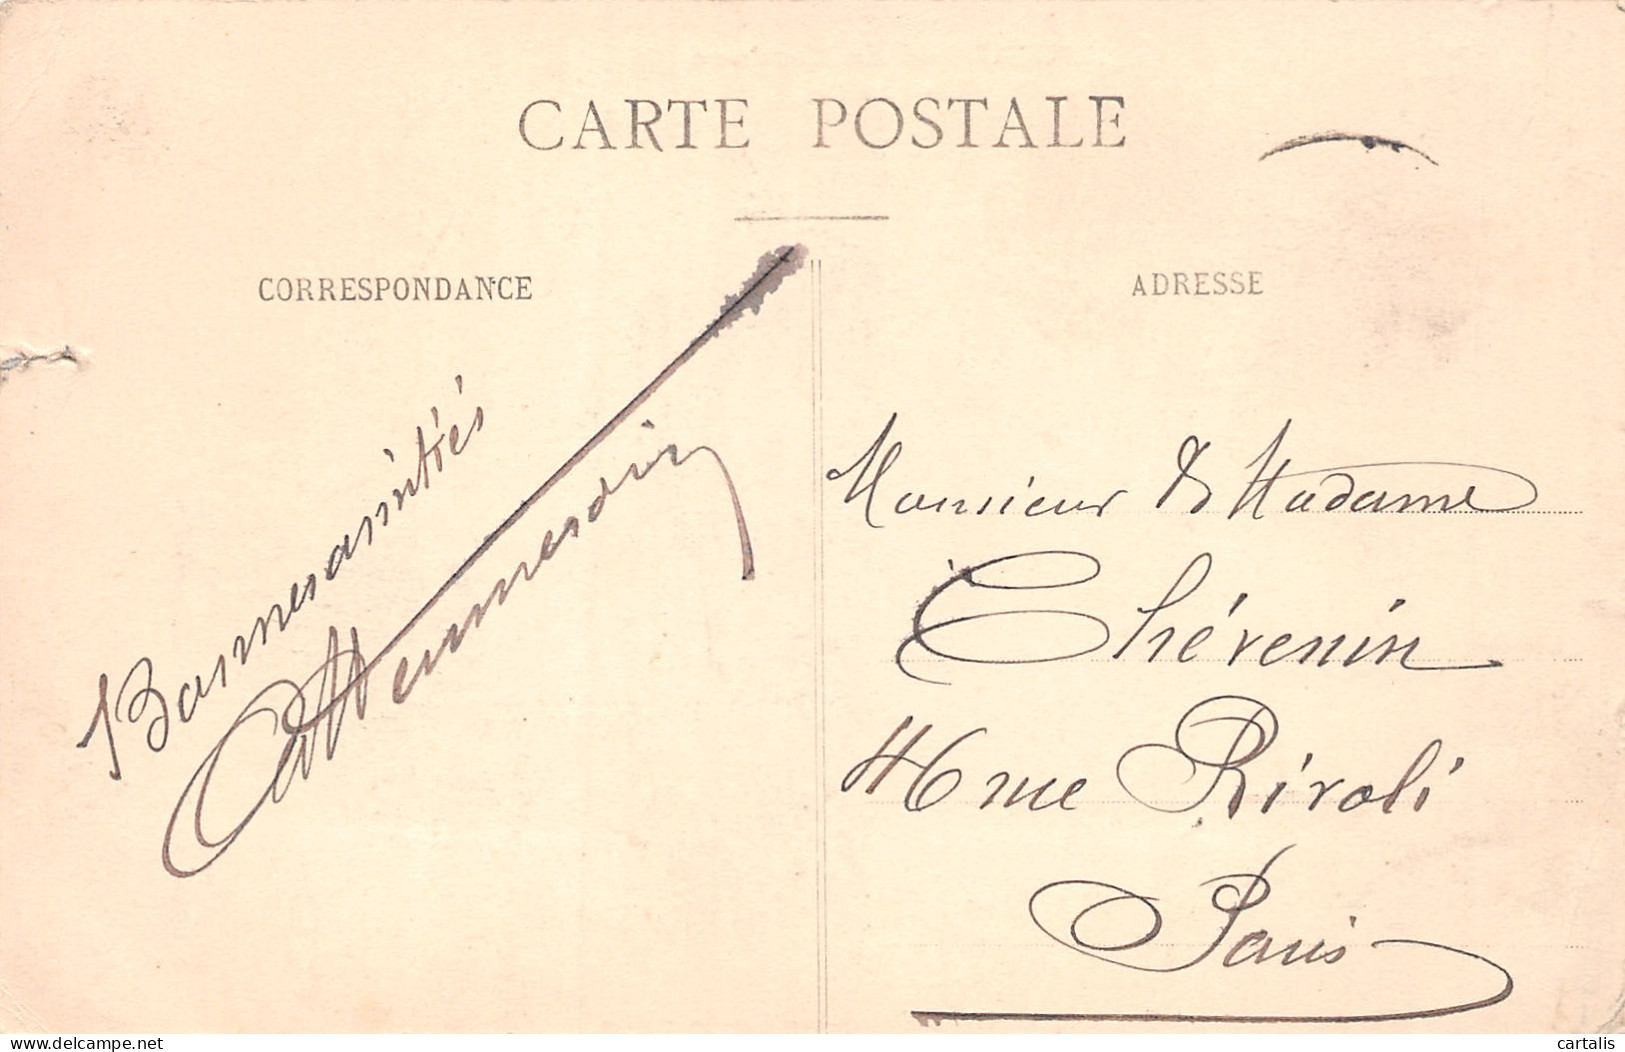 CARTE POSTALE
CORRESPONDANCE
Bonnes amitiés
ADRESSE
Monsieur & Madame
Thévenin
46 rue Rivoli
Paris
delcampe.net
cartalis